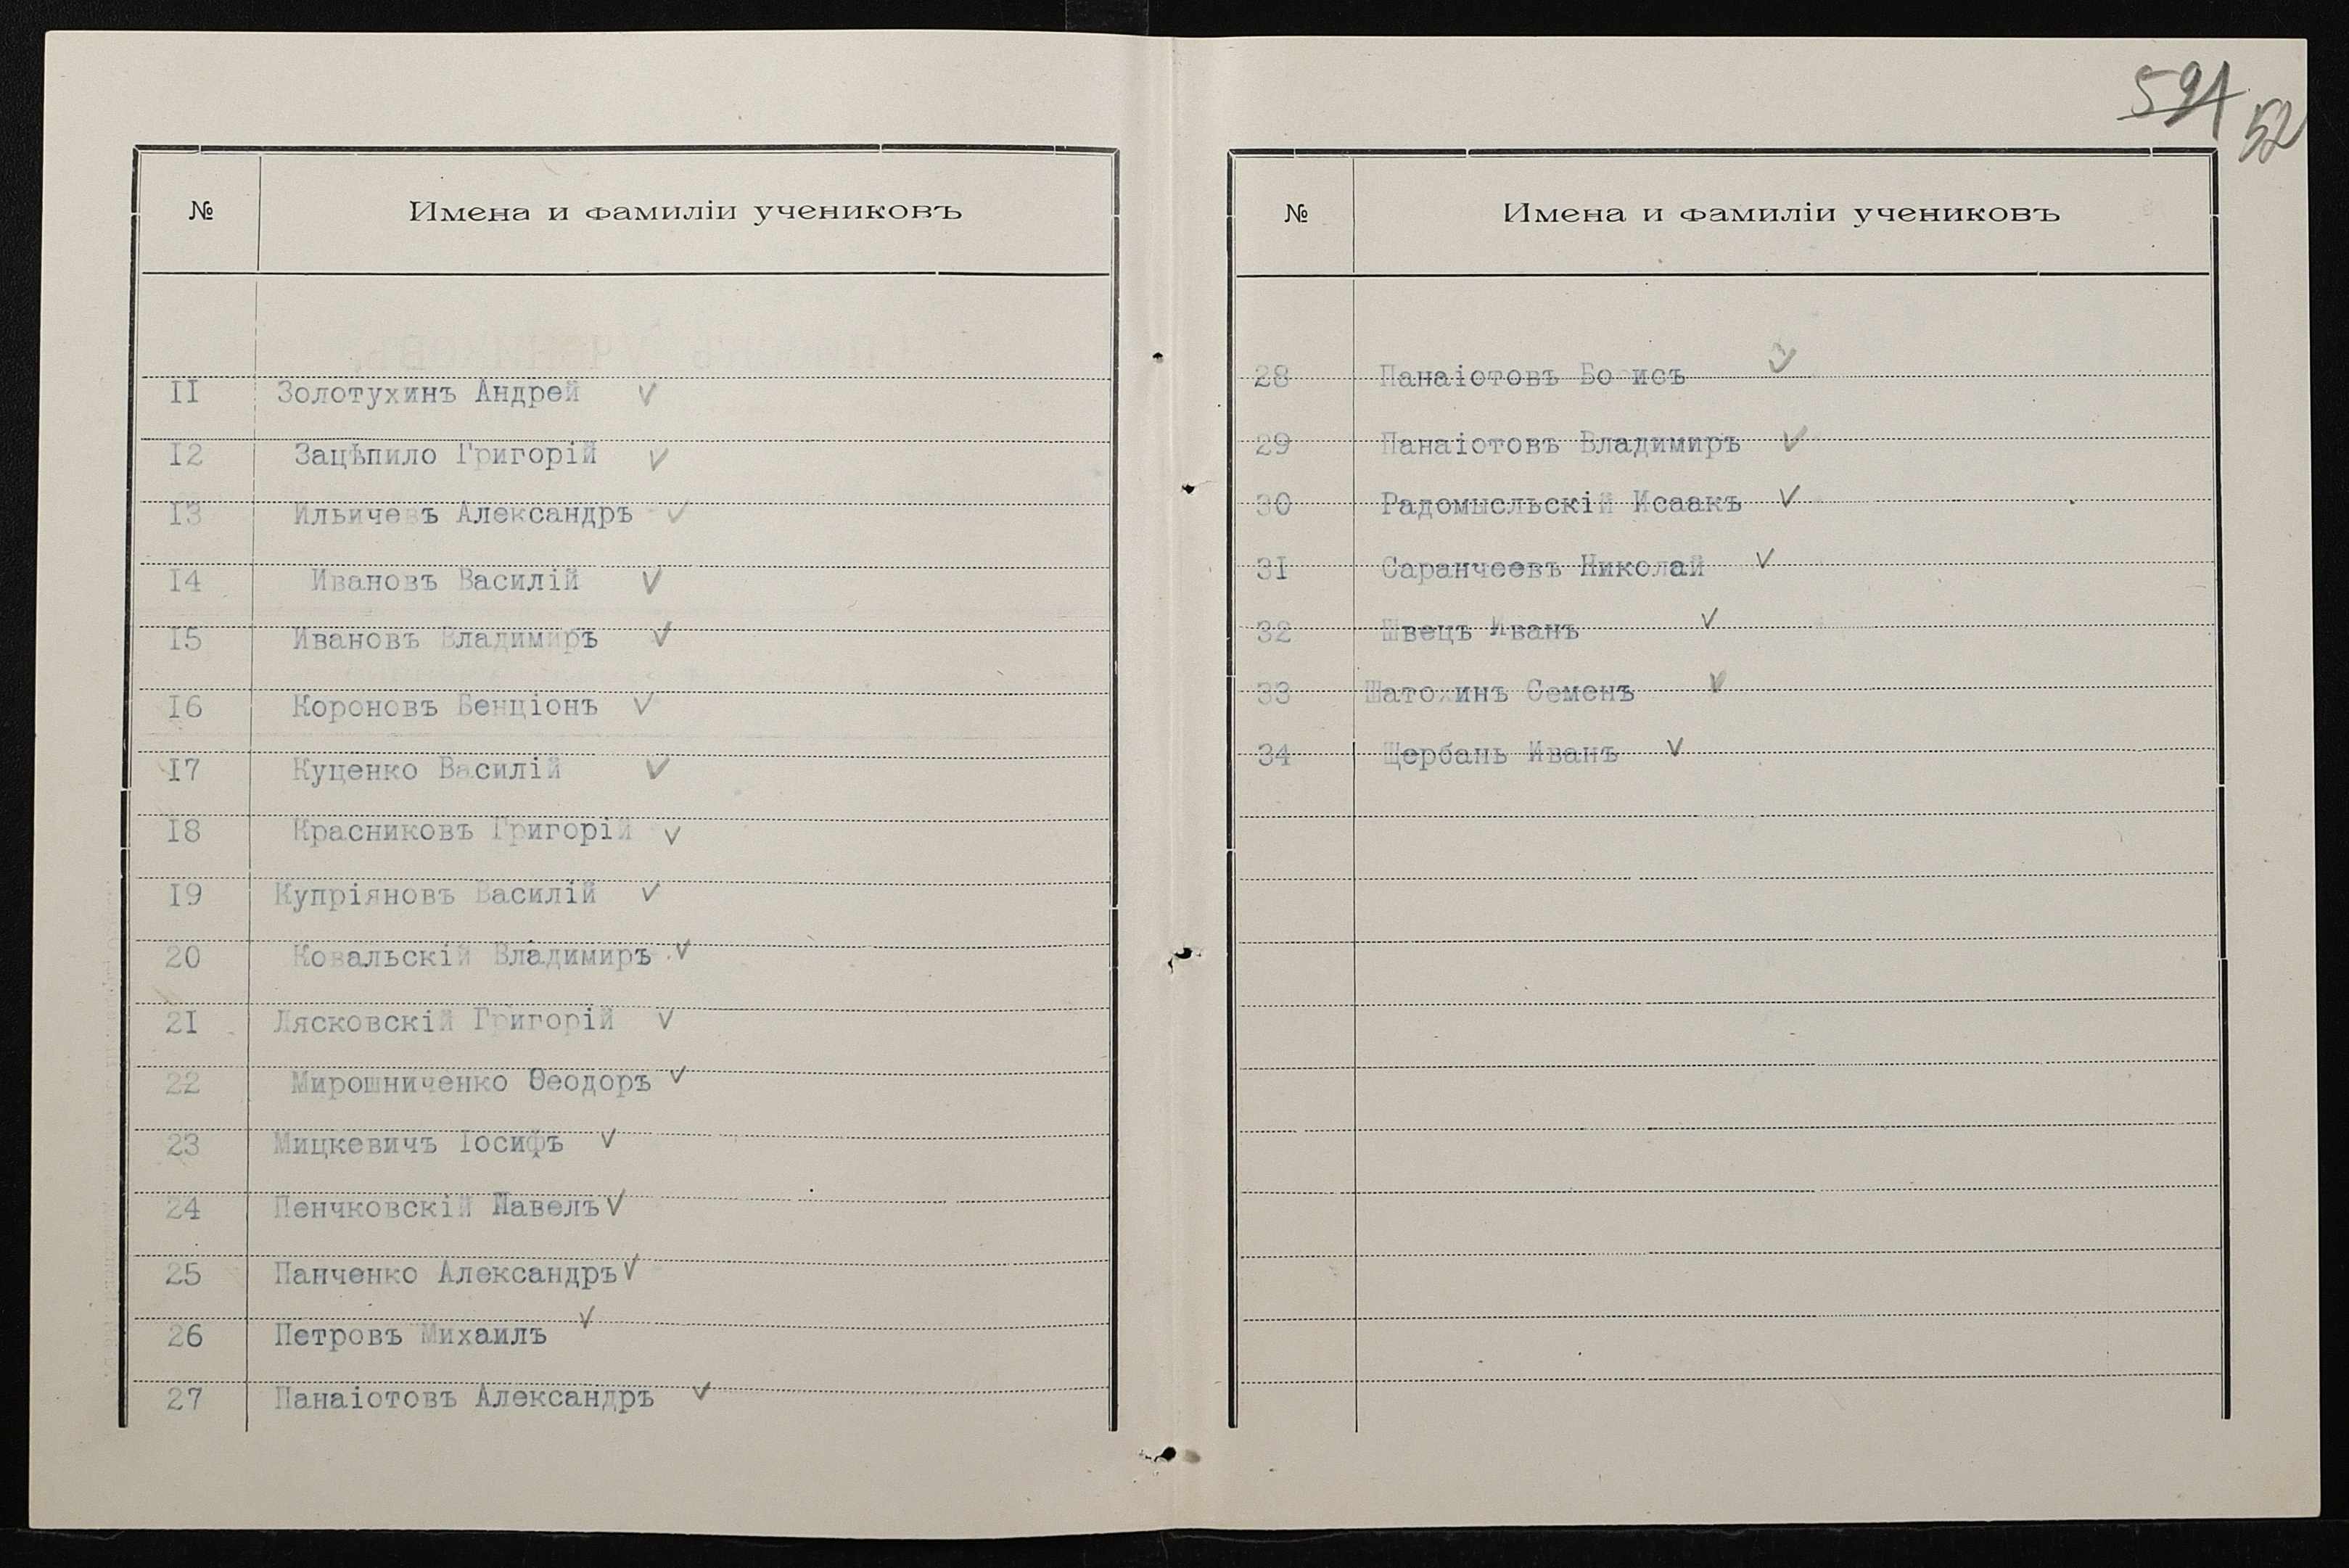 № Имена и фамиліи учениковъ
11 Золотухинъ Андрей V
12 Зацѣпило Григорій V
13 Ильичевъ Александръ V
14 Ивановъ Василій V
15 Ивановъ Владимиръ V
16 Короновъ Бенціонъ V
17 Куценко Василій V
18 Красниковъ Григорій V
19 Купріяновъ Василій V
20 Ковальскій Владимиръ V
21 Лясковскій Григорій V
22 Мирошниченко Ѳеодоръ V
23 Мицкевичъ Іосифъ V
24 Пенчковскій Павелъ V
25 Панченко Александръ V
26 Петровъ Михаилъ V
27 Панаіотовъ Александръ V
591 52
№ Имена и фамиліи учениковъ
28 Панаіотовъ Борисъ V
29 Панаіотовъ Владимиръ V
30 Радомысльскій Исаакъ V
31 Саранчеевъ Николай V
32 Швецъ Иванъ V
33 Шатохинъ Семенъ V
34 Щербань Иванъ V